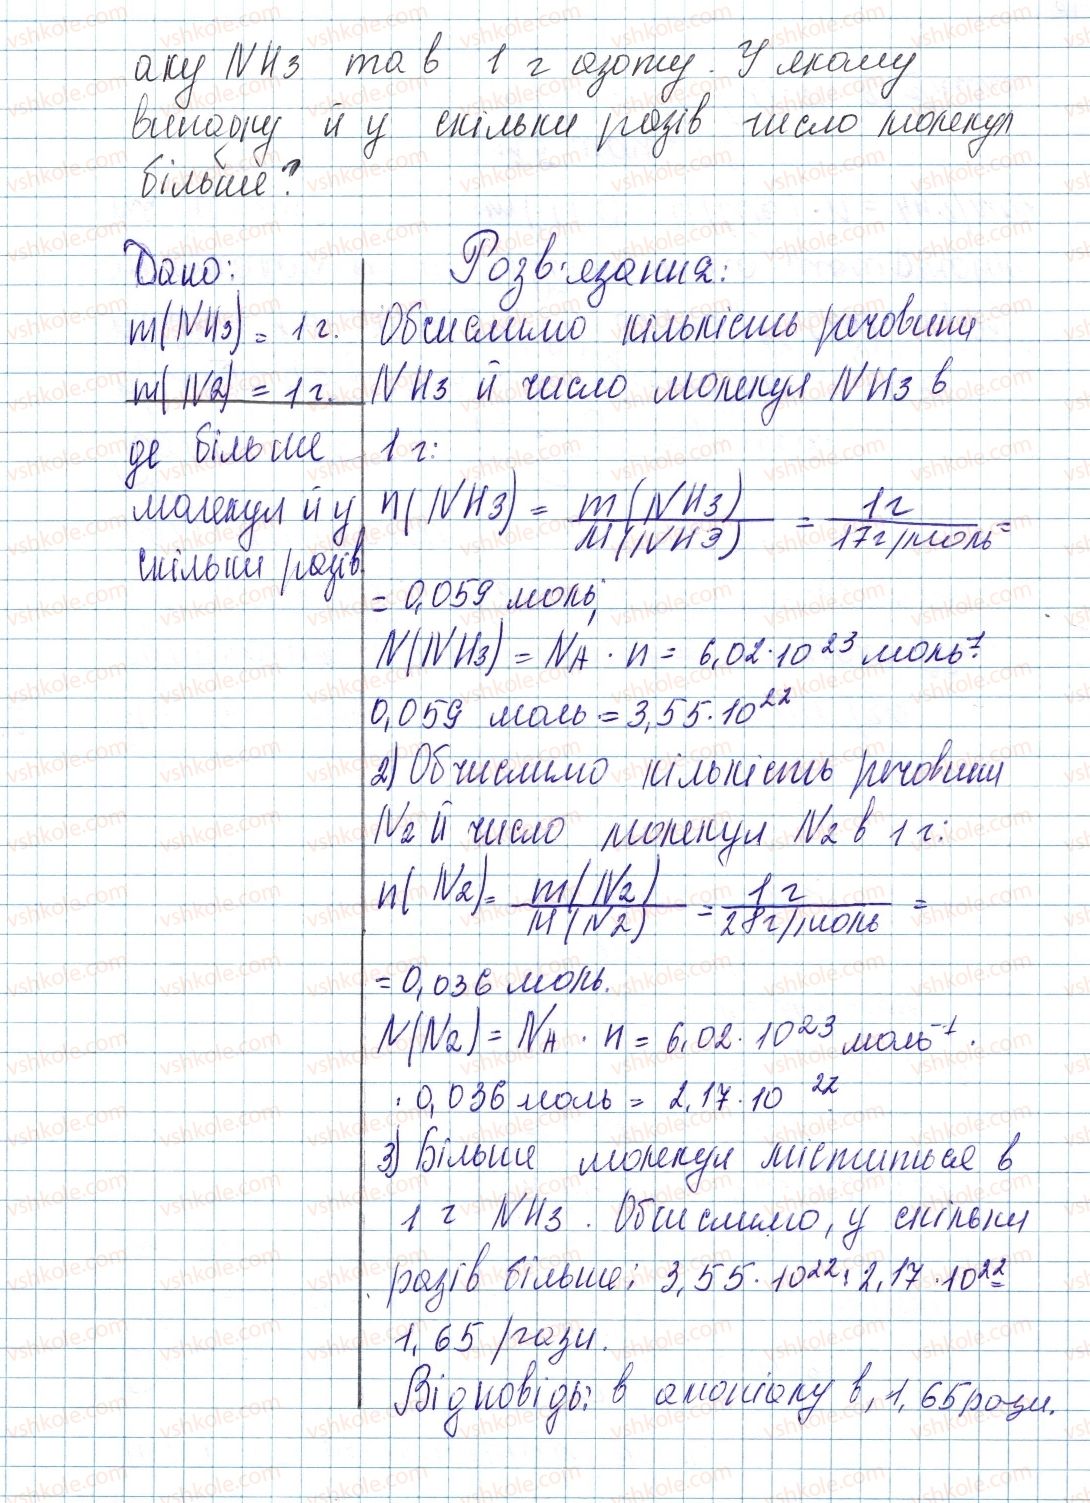 аку NH3 та в 1 г азоту. У якому
випадку й у скільки разів число молекул
більше?
Дано:
m(NH3) = 1 г.
m(N2) = 1 г.
де більше
молекул й у
скільки разів
Розв'язання:
Обчислимо кількість речовини
NH3 й число молекул NH3 в
1 г:
n(NH3) = m(NH3)/M(NH3) = 1г/17г/моль =
= 0,059 моль;
N(NH3) = NA · n = 6,02·10²³ моль⁻¹·
0,059 моль = 3,55·10²²
2) Обчислимо кількість речовини
N2 й число молекул N2 в 1 г:
n(N2) = m(N2)/M(N2) = 1 г/28г/моль =
= 0,036 моль.
N(N2) = NA · n = 6,02·10²³ моль⁻¹ ·
· 0,036 моль = 2,17·10²²
3) Більше молекул міститься в
1 г NH3. Обчислимо, у скільки
разів більше: 3,55·10²² : 2,17·10²² =
1,65 рази.
Відповідь: в амоніаку в 1,65 рази.